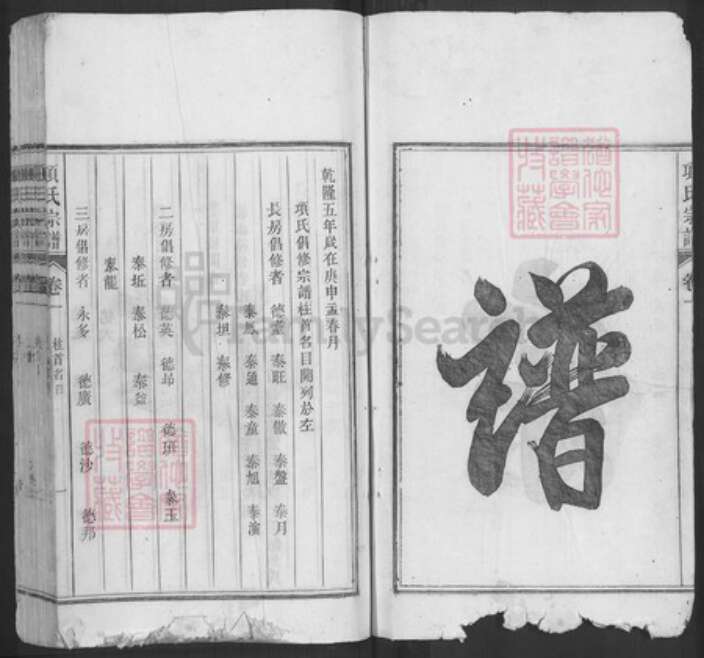 項氏宗譜
卷一
譜
乾隆五年歲在庚申孟春月
項氏倡修宗譜柱首名目開列於左
長房倡修者 德 泰旺 泰徵 泰盤 泰月
泰 泰通 泰童 泰旭 泰濱
泰坦 泰修
二房倡修者 英 德昂 德班 泰玉
泰坵 泰松 泰益
泰龍
三房倡修者 永多 德廣 德沙 德邦
項氏宗譜
卷一
柱首名目